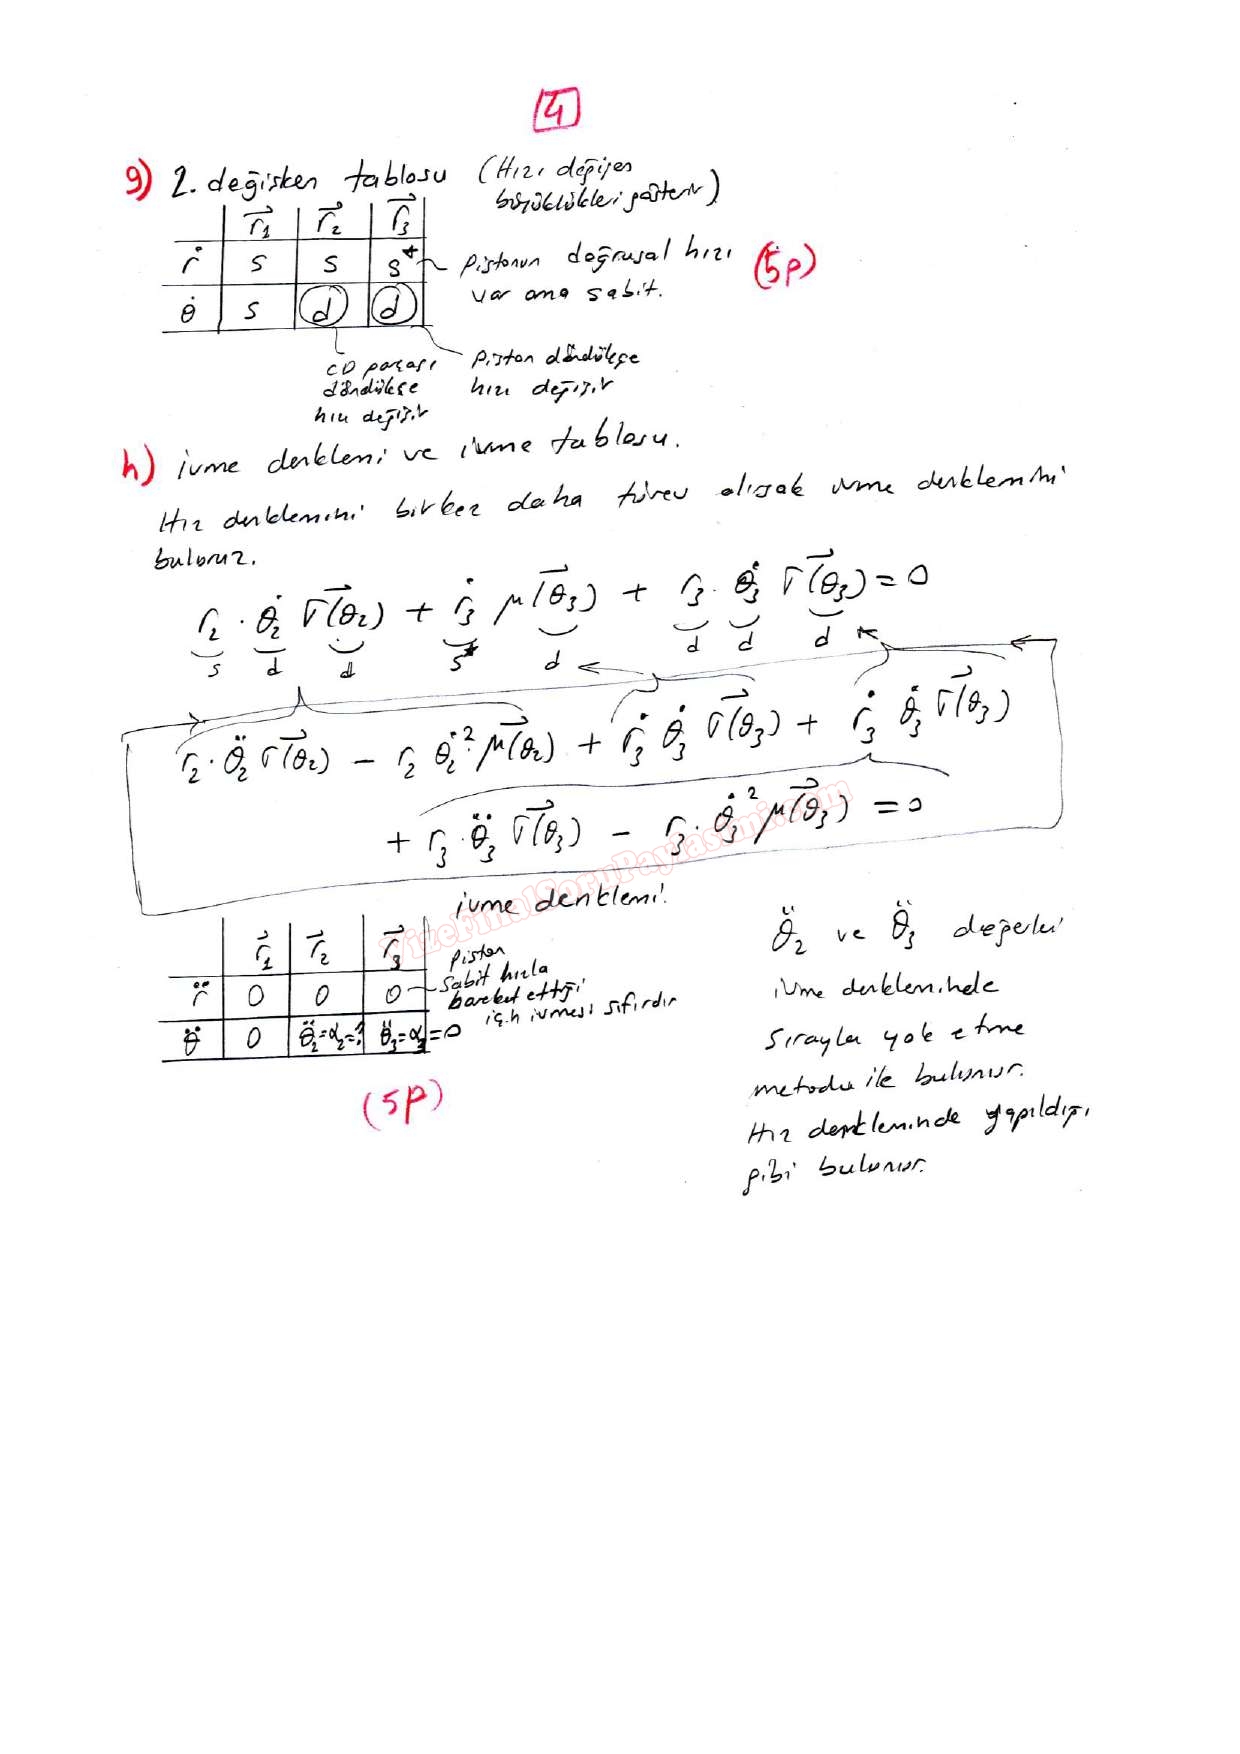 4
g) 2. değişken tablosu (Hızı değişen
büyüklükleri gösterir)
r⃗₁ r⃗₂ r⃗₃
ṙ s s s* Pistonun doğrusal hızı (5p)
var ama sabit.
θ̇ s d d
CD parçası
döndükçe
hızı değişir
Piston döndükçe
hızı değişir
h) ivme denklemi ve ivme tablosu.
Hız denklemini birkez daha türev alırsak ivme denklemini
buluruz.
r₂ · θ̇₂ Γ⃗(θ₂) + ṙ₃ μ⃗(θ₃) + r₃ · θ̇₃ Γ⃗(θ₃) = 0
s d d s* d d d d
r₂ · θ̈₂ Γ⃗(θ₂) − r₂ θ̇₂² μ⃗(θ₂) + ṙ₃ θ̇₃ Γ⃗(θ₃) + ṙ₃ θ̇₃ Γ⃗(θ₃)
+ r₃ · θ̈₃ Γ⃗(θ₃) − r₃ · θ̇₃² μ⃗(θ₃) = 0
ivme denklemi
r⃗₁ r⃗₂ r⃗₃
r̈ 0 0 0
θ̈ 0 θ̈₂=α₂=? θ̈₃=α₃=0
piston
sabit hızla
hareket ettiği
için ivmesi sıfırdır
(5p)
θ̈₂ ve θ̈₃ değerleri
ivme denkleminde
Sırayla yok etme
metodu ile bulunur.
Hız denkleminde yapıldığı
gibi bulunur.
VizeFinalSoruPaylasimi.com